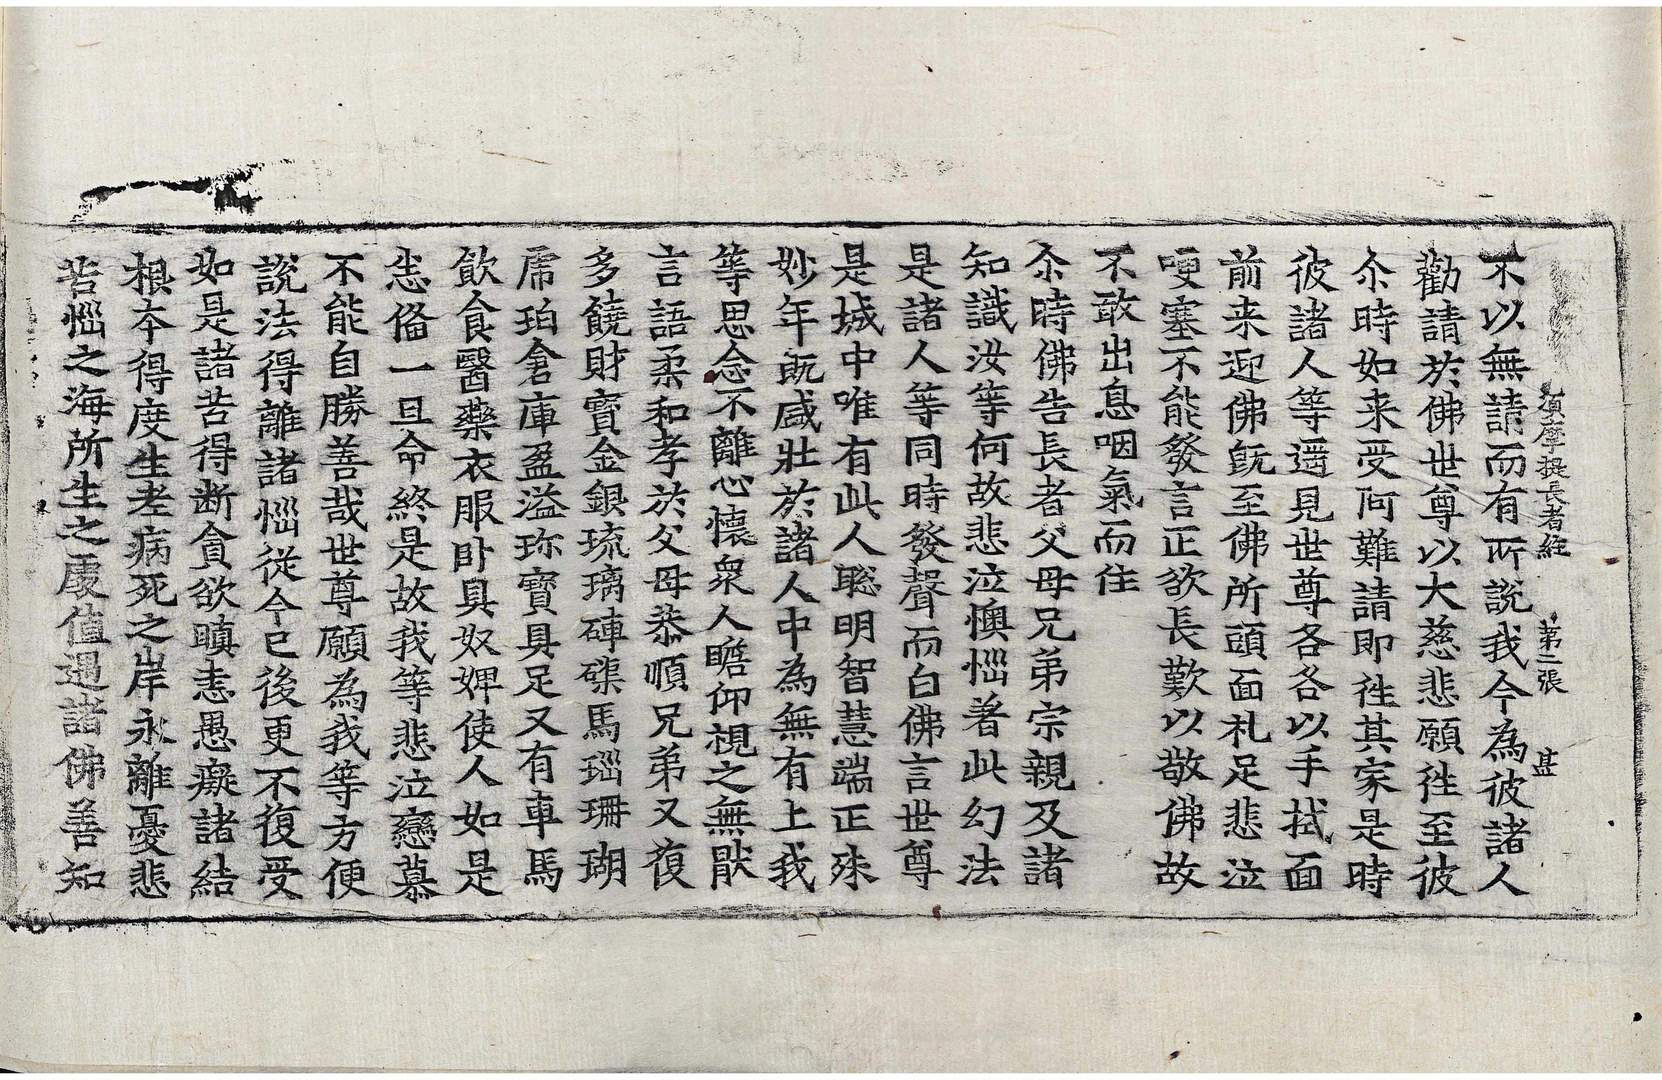 須摩提長者經　第二張　甚
不以無請而有所說我今為彼諸人
勸請於佛世尊以大慈悲願往至彼
尒時如来受阿難請即往其家是時
彼諸人等遥見世尊各各以手拭面
前来迎佛旣至佛所頭面礼足悲泣
哽塞不能發言正欲長歎以敬佛故
不敢出息咽氣而住
尒時佛告長者父母兄弟宗親及諸
知識汝等何故悲泣懊惱著此幻法
是諸人等同時發聲而白佛言世尊
是城中唯有此人聡明智慧端正殊
妙年旣咸壯於諸人中為無有上我
等思念不離心懷衆人瞻仰視之無猒
言語柔和孝於父母恭順兄弟又復
多饒財寳金銀琉璃硨磲馬瑙珊瑚
虎珀倉庫盈溢珎寶具足又有車馬
飲食醫藥衣服卧具奴婢使人如是
恙俻一旦命終是故我等悲泣戀慕
不能自勝善哉世尊願為我等方便
說法得離諸惱從今已後更不復受
如是諸苦得断貪欲瞋恚愚癡諸結
根本得度生老病死之岸永離憂悲
苦惱之海所生之處值遇諸佛善知